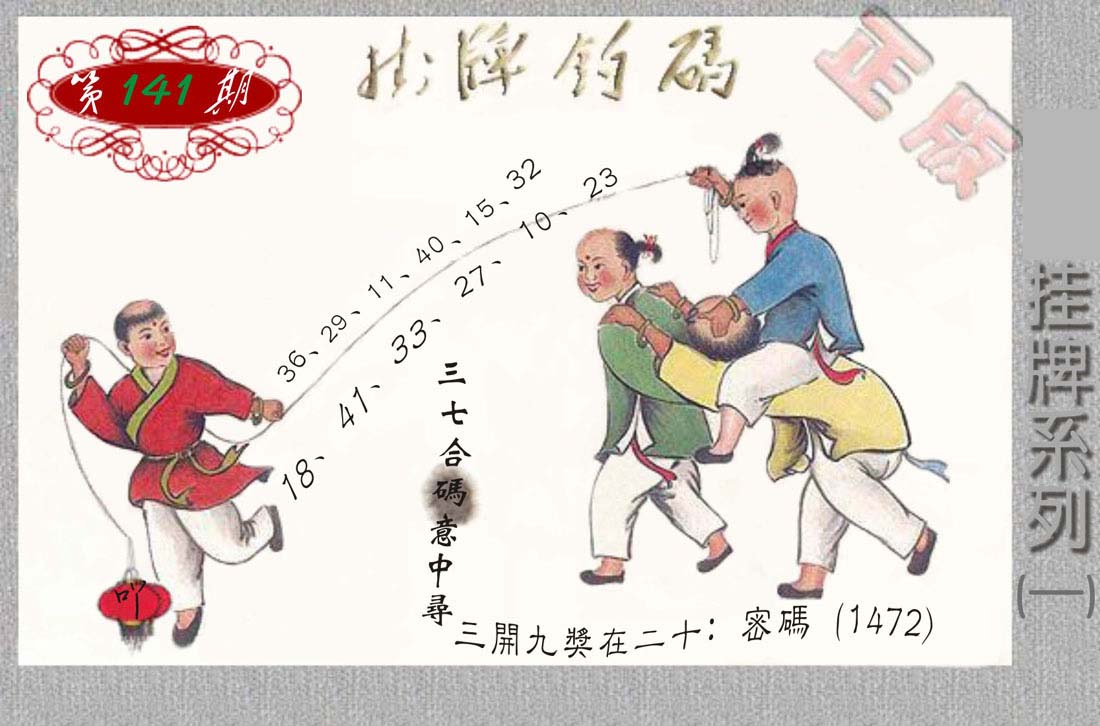 第141期
掛牌釣碼
正版
36、29、11、40、15、32
18、41、33、27、10、23
三七合碼意中尋
三開九獎在二十：密碼（1472）
叩
挂牌系列(一)